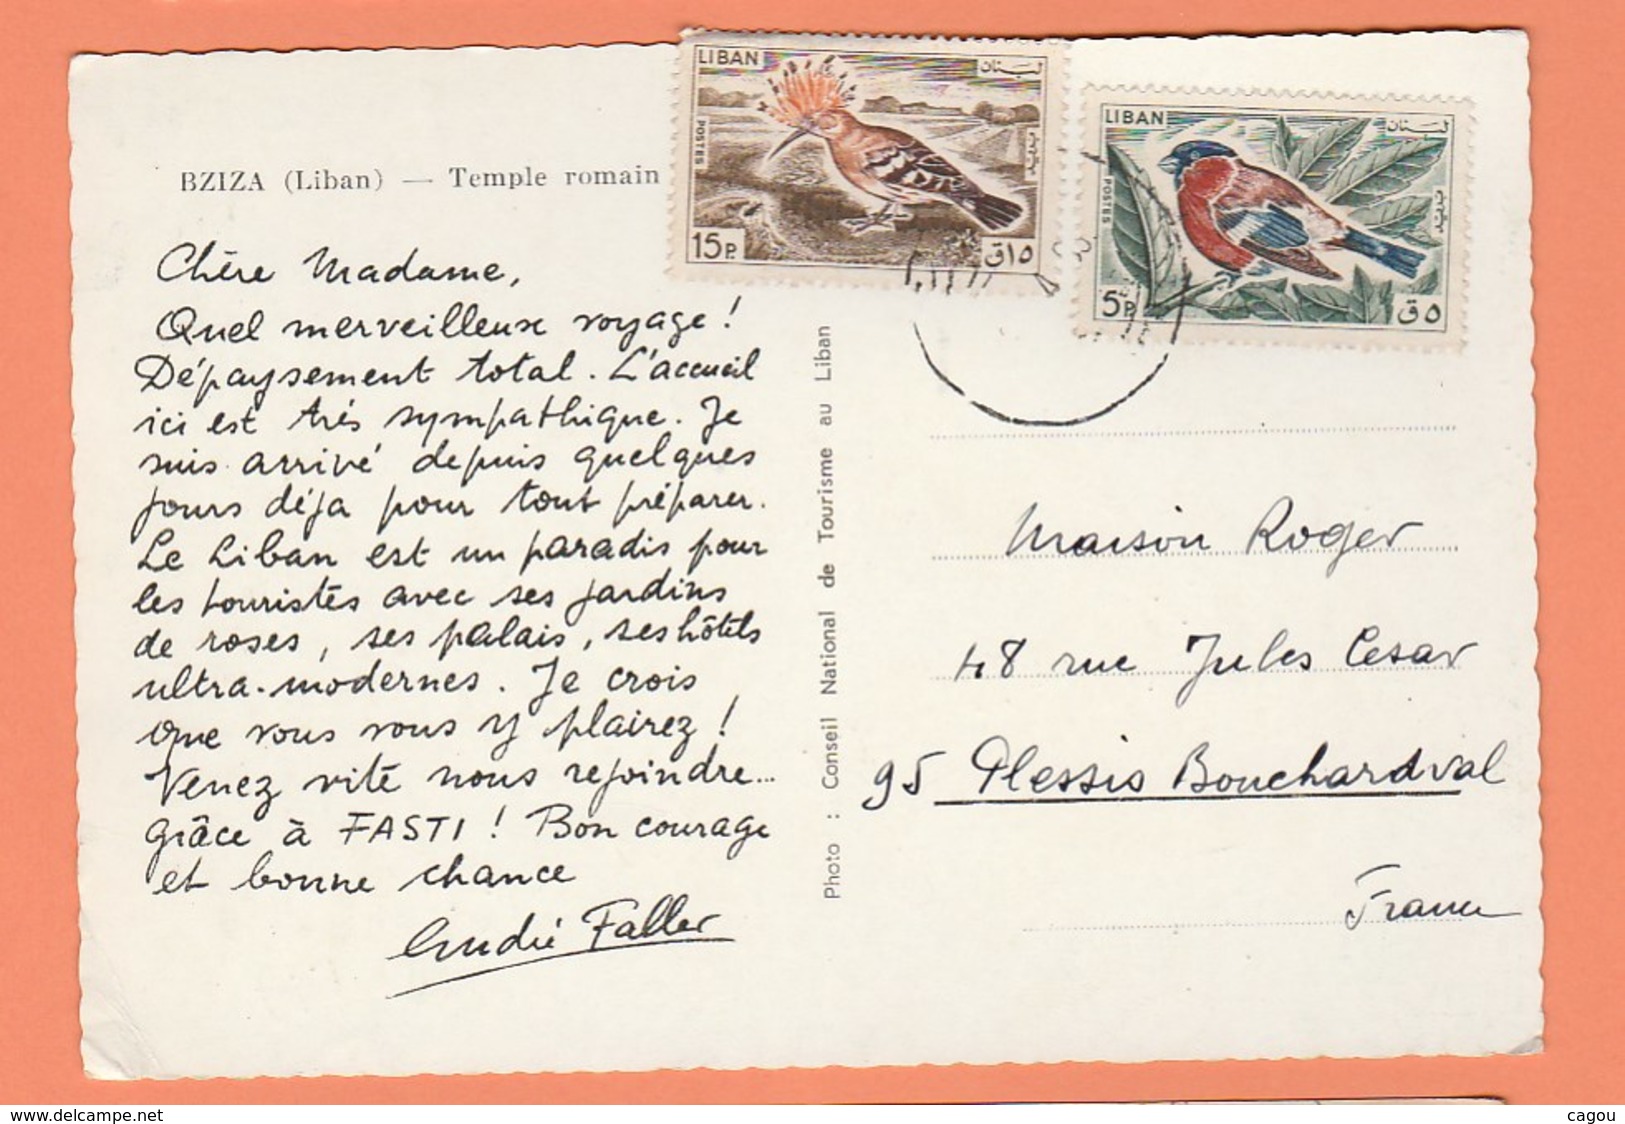 LIBAN لبنان
POSTES بريد
15P. ١٥ق
LIBAN لبنان
POSTES بريد
5P. ٥ق
BZIZA (Liban) — Temple romain
Chère Madame,
Quel merveilleux voyage !
Dépaysement total. L'accueil
ici est très sympathique. Je
suis arrivé depuis quelques
jours déja pour tout préparer.
Le Liban est un paradis pour
les touristes avec ses jardins
de roses, ses palais, ses hôtels
ultra-modernes. Je crois
que vous vous y plairez !
Venez vite nous rejoindre...
grâce à FASTI ! Bon courage
et bonne chance
André Faller
Photo : Conseil National de Tourisme au Liban
Maison Roger
48 rue Jules Cesar
95 Plessis Bouchardval
France
www.delcampe.net
cagou